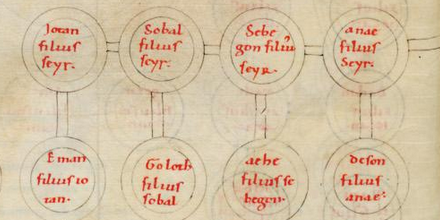 Jotan
filius
seyr.
Sobal
filius
seyr.
Sebe
gon filiu᷒
seyr.
anae
filius
Seyr.
Eman
filius io
tan.
Goloth
filius
sobal
aehe
filius se
begon.
deson
filius
anae.